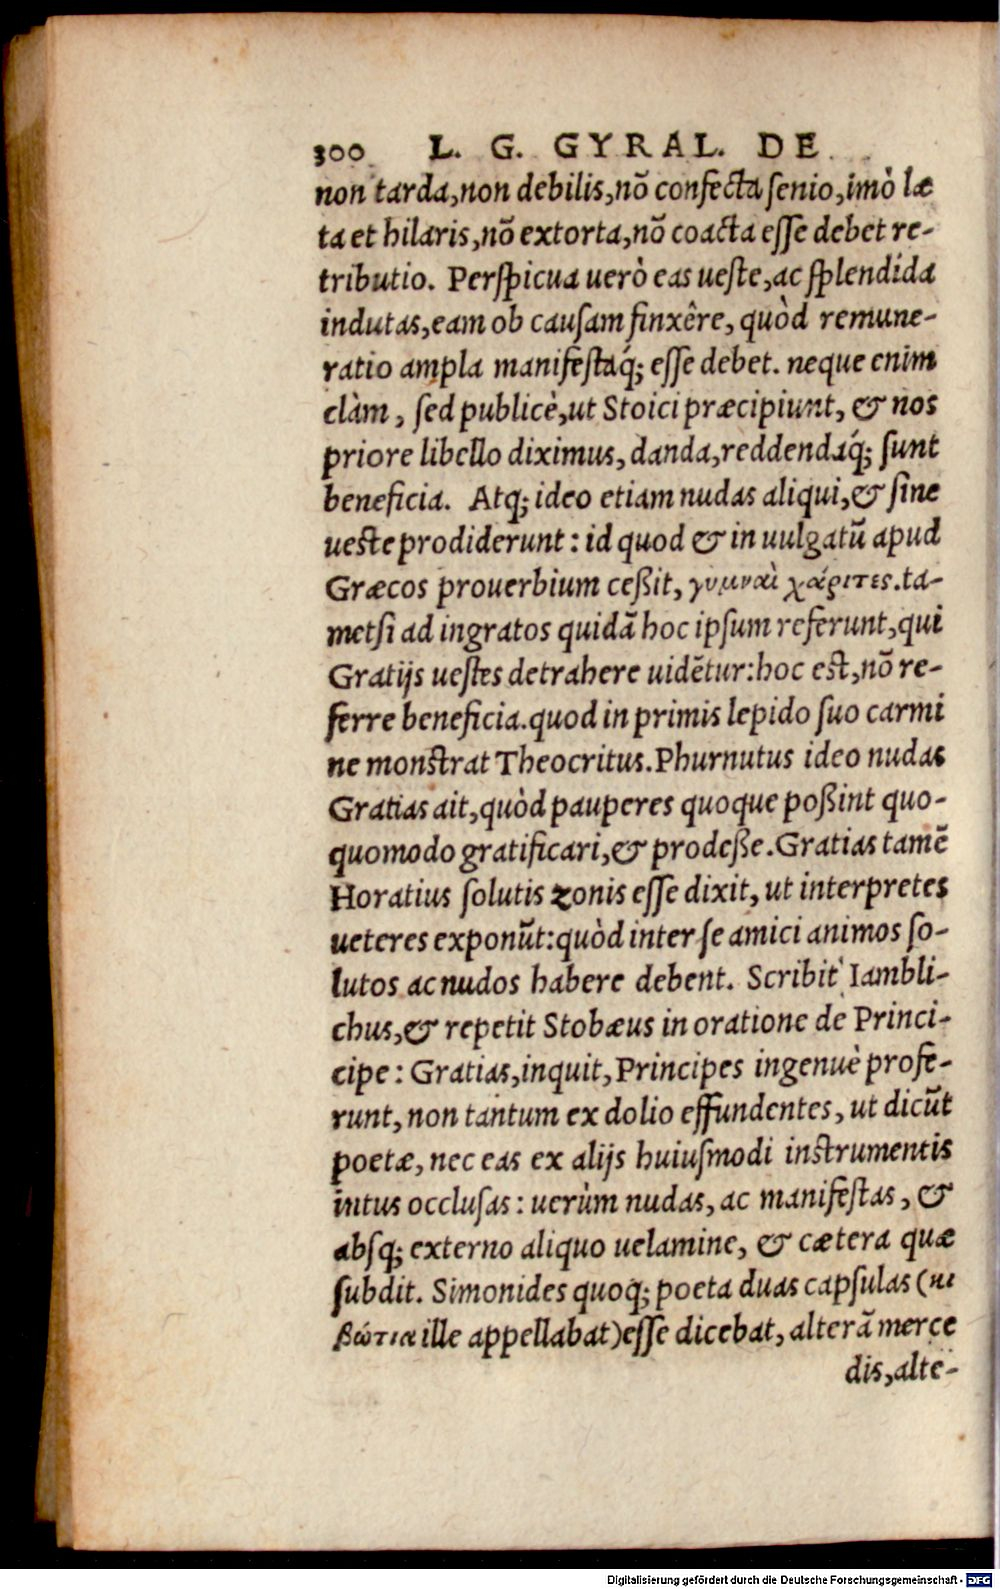 300 L. G. GYRAL. DE
non tarda,non debilis,nō confecta senio,imò læ
ta et hilaris,nō extorta,nō coacta esse debet re-
tributio. Perspicua uerò eas ueste,ac splendida
indutas,eam ob causam finxêre, quòd remune-
ratio ampla manifestaq́; esse debet. neque enim
clàm, sed publicè,ut Stoici præcipiunt, & nos
priore libello diximus, danda,reddendaq́; sunt
beneficia. Atq; ideo etiam nudas aliqui,& sine
ueste prodiderunt : id quod & in uulgatũ apud
Græcos prouerbium ceßit, γυμναὶ χάριτες.ta-
metsi ad ingratos quidā hoc ipsum referunt,qui
Gratijs uestes detrahere uidẽtur:hoc est,nō re-
ferre beneficia.quod in primis lepido suo carmi
ne monstrat Theocritus.Phurnutus ideo nudas
Gratias ait,quòd pauperes quoque poßint quo-
quomodo gratificari,& prodeße.Gratias tamẽ
Horatius solutis zonis esse dixit, ut interpretes
ueteres exponũt:quòd inter se amici animos so-
lutos ac nudos habere debent. Scribit Iambli-
chus,& repetit Stobæus in oratione de Princi-
cipe : Gratias,inquit,Principes ingenuè profe-
runt, non tantum ex dolio effundentes, ut dicũt
poetæ, nec eas ex alijs huiusmodi instrumentis
intus occlusas : uerùm nudas, ac manifestas, &
absq; externo aliquo uelamine, & cætera quæ
subdit. Simonides quoq; poeta duas capsulas (κι
βώτια ille appellabat)esse dicebat, alterā merce
dis,alte-
Digitalisierung gefördert durch die Deutsche Forschungsgemeinschaft - DFG